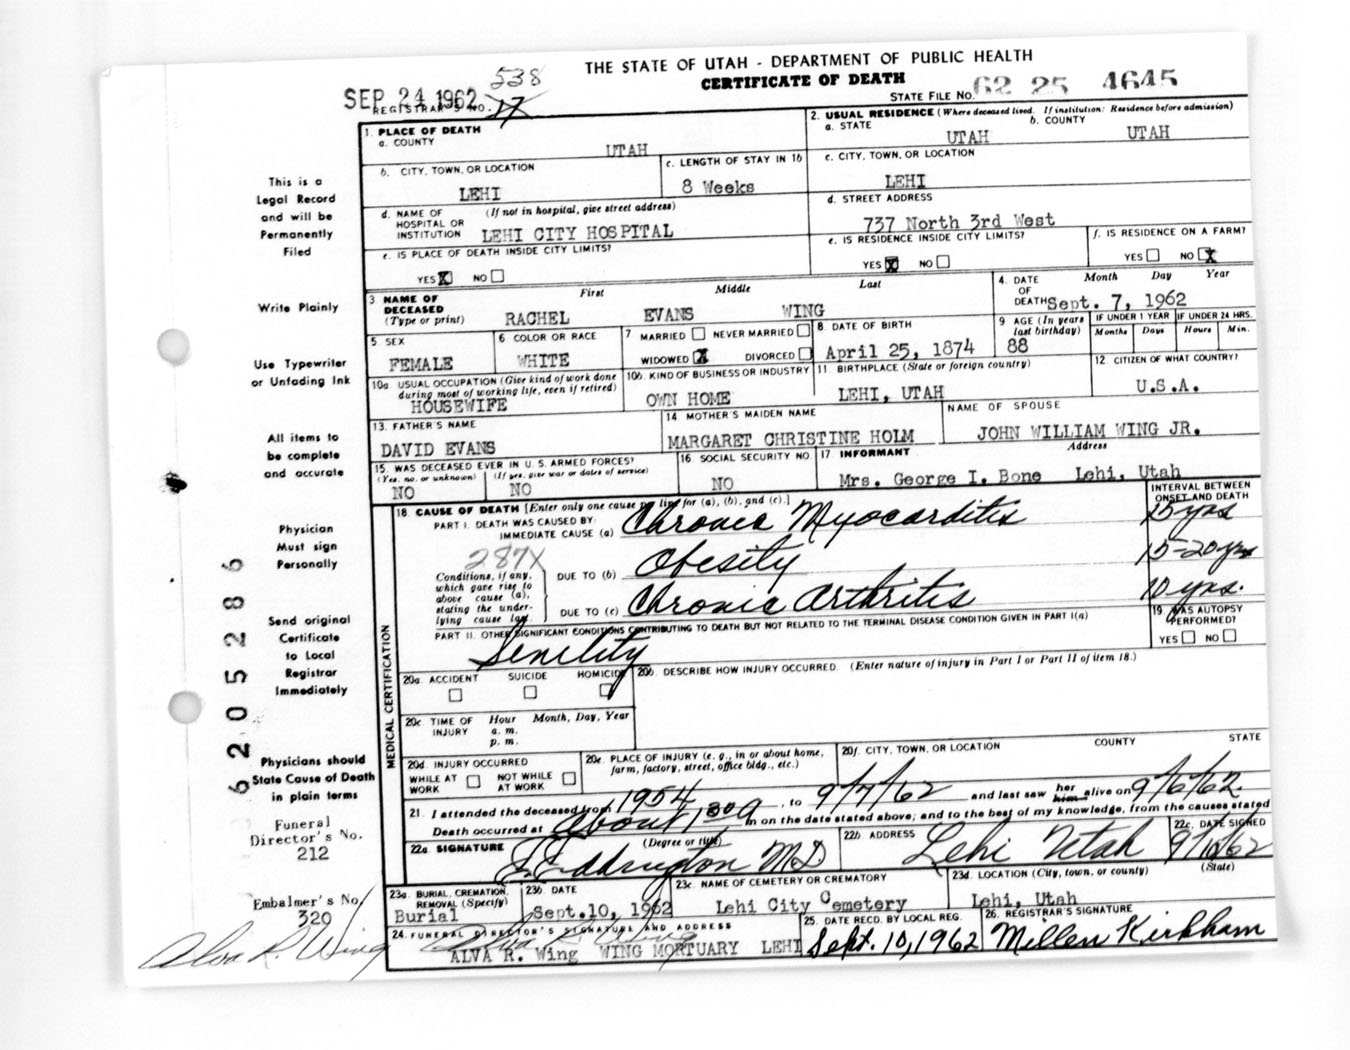 THE STATE OF UTAH - DEPARTMENT OF PUBLIC HEALTH
CERTIFICATE OF DEATH
SEP 24 1962 538
REGISTRAR'S NO. 17
STATE FILE NO. 62 25 4645
1. PLACE OF DEATH
a. COUNTY
UTAH
2. USUAL RESIDENCE (Where deceased lived. If institution: Residence before admission)
a. STATE UTAH b. COUNTY UTAH
b. CITY, TOWN, OR LOCATION
LEHI
c. LENGTH OF STAY IN 1b
8 Weeks
c. CITY, TOWN, OR LOCATION
LEHI
d. NAME OF HOSPITAL OR INSTITUTION (If not in hospital, give street address)
LEHI CITY HOSPITAL
d. STREET ADDRESS
737 North 3rd West
e. IS PLACE OF DEATH INSIDE CITY LIMITS?
YES X NO
e. IS RESIDENCE INSIDE CITY LIMITS?
YES X NO
f. IS RESIDENCE ON A FARM?
YES NO X
3 NAME OF DECEASED (Type or print) First Middle Last
RACHEL EVANS WING
4. DATE OF DEATH Month Day Year
Sept. 7, 1962
5. SEX
FEMALE
6 COLOR OR RACE
WHITE
7 MARRIED NEVER MARRIED
WIDOWED X DIVORCED
8 DATE OF BIRTH
April 25, 1874
9 AGE (In years last birthday)
88
IF UNDER 1 YEAR Months Days
IF UNDER 24 HRS. Hours Min.
10a USUAL OCCUPATION (Give kind of work done during most of working life, even if retired)
HOUSEWIFE
10b. KIND OF BUSINESS OR INDUSTRY
OWN HOME
11 BIRTHPLACE (State or foreign country)
LEHI, UTAH
12 CITIZEN OF WHAT COUNTRY?
U.S.A.
13. FATHER'S NAME
DAVID EVANS
14 MOTHER'S MAIDEN NAME
MARGARET CHRISTINE HOLM
NAME OF SPOUSE
JOHN WILLIAM WING JR.
15. WAS DECEASED EVER IN U.S. ARMED FORCES?
(Yes, no, or unknown) (If yes, give war or dates of service)
NO NO
16 SOCIAL SECURITY NO.
NO
17 INFORMANT Address
Mrs. George I. Bone Lehi, Utah
18. CAUSE OF DEATH [Enter only one cause per line for (a), (b), and (c).]
INTERVAL BETWEEN ONSET AND DEATH
PART I. DEATH WAS CAUSED BY:
IMMEDIATE CAUSE (a) Chronic Myocarditis 15 yrs
287X
Conditions, if any, which gave rise to above cause (a), stating the underlying cause last.
DUE TO (b) Obesity 15-20 yrs
DUE TO (c) Chronic Arthritis 10 yrs.
PART II. OTHER SIGNIFICANT CONDITIONS CONTRIBUTING TO DEATH BUT NOT RELATED TO THE TERMINAL DISEASE CONDITION GIVEN IN PART I(a)
Senility
19. WAS AUTOPSY PERFORMED?
YES NO
20a. ACCIDENT SUICIDE HOMICIDE
20b. DESCRIBE HOW INJURY OCCURRED. (Enter nature of injury in Part I or Part II of item 18.)
20c. TIME OF INJURY Hour Month, Day, Year
a. m.
p. m.
20d. INJURY OCCURRED
WHILE AT WORK NOT WHILE AT WORK
20e. PLACE OF INJURY (e. g., in or about home, farm, factory, street, office bldg., etc.)
20f. CITY, TOWN, OR LOCATION COUNTY STATE
21. I attended the deceased from 1954, to 9/7/62 and last saw her him alive on 9/6/62.
Death occurred at About 1 30 a m on the date stated above; and to the best of my knowledge, from the causes stated
22a. SIGNATURE (Degree or title)
Eddington MD
22b. ADDRESS
Lehi Utah
22c. DATE SIGNED
23a. BURIAL, CREMATION, REMOVAL (Specify)
Burial
23b. DATE
Sept.10, 1962
23c. NAME OF CEMETERY OR CREMATORY
Lehi City Cemetery
23d. LOCATION (City, town, or county) (State)
Lehi, Utah
24. FUNERAL DIRECTOR'S SIGNATURE AND ADDRESS
ALVA R. Wing WING MORTUARY LEHI
25. DATE RECD. BY LOCAL REG.
Sept. 10, 1962
26. REGISTRAR'S SIGNATURE
Millen Kirkham
MEDICAL CERTIFICATION
This is a
Legal Record
and will be
Permanently
Filed
Write Plainly
Use Typewriter
or Unfading Ink
All items to
be complete
and accurate
Physician
Must sign
Personally
Send original
Certificate
to Local
Registrar
Immediately
Physicians should
State Cause of Death
in plain terms
Funeral
Director's No.
212
Embalmer's No.
320
Alva R. Wing
6205286